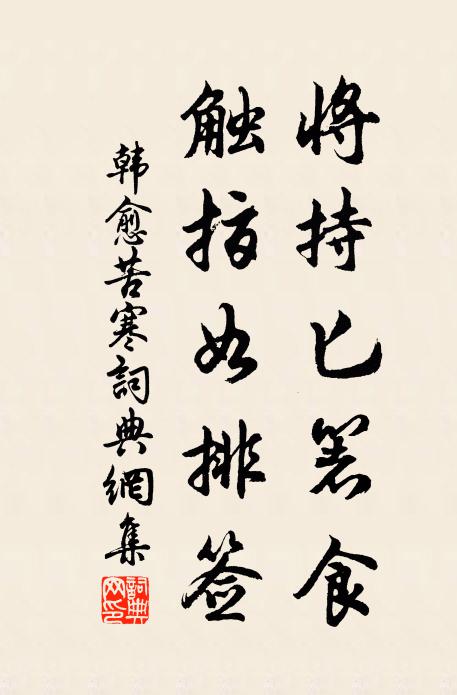 将持匕箸食
触指如排签
韩愈苦寒詞典網集
詞典网印